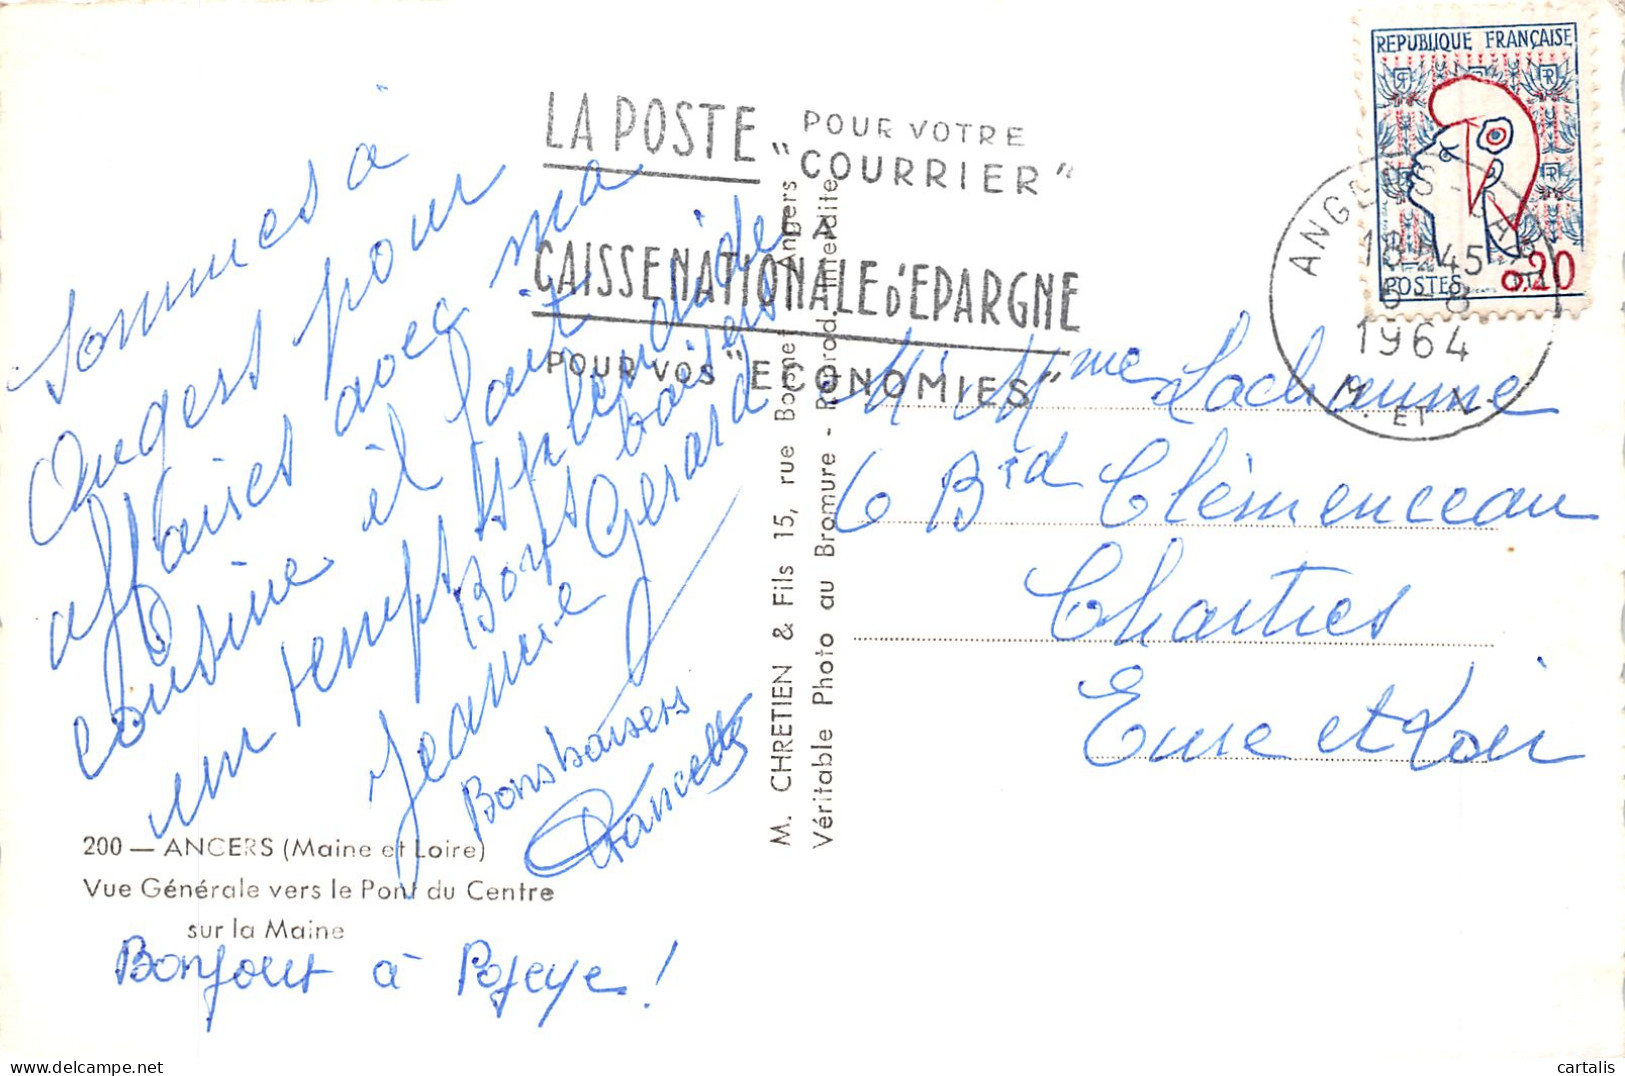 Sommes à
Angers pour
affaires avec ma
cousine il fait
un temps splendide
Bons baisers
Jeanne Gerard
Bons baisers
Francette
200 — ANGERS (Maine et Loire)
Vue Générale vers le Pont du Centre
sur la Maine
Bonjour à Popeye !
M. CHRETIEN & Fils 15, rue Bosnet Angers
Véritable Photo au Bromure - Reprod. Interdite
LA POSTE POUR VOTRE
"COURRIER"
A
CAISSE NATIONALE D'EPARGNE
POUR VOS "ECONOMIES"
REPUBLIQUE FRANÇAISE
POSTES 0,20
ANGERS GARE
18H45
6-8
1964
M. ET L.
Mr Mme Lachaume
6 Brd Clémenceau
Chartres
Eure et Loir
cartalis
www.delcampe.net